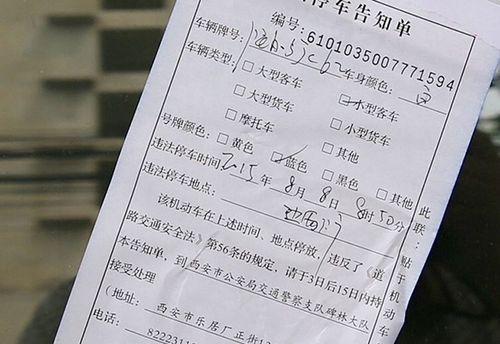 停车告知单
编号:6101035007771594
车辆牌号: 车身颜色: 白
车辆类型: □大型客车 ☑小型客车
□大型货车 □小型货车
□摩托车 □其他
号牌颜色: □黄色 ☑蓝色 □黑色 □其他
违法停车时间 2015年 8月 8日 8时50分
违法停车地点:
该机动车在上述时间、地点停放,违反了《道
路交通安全法》第56条的规定,请于3日后15日内持
本告知单,到西安市公安局交通警察支队碑林大队
接受处理
(地址: 西安市乐居厂正街12
电话: 8222311
此联:贴于机动车